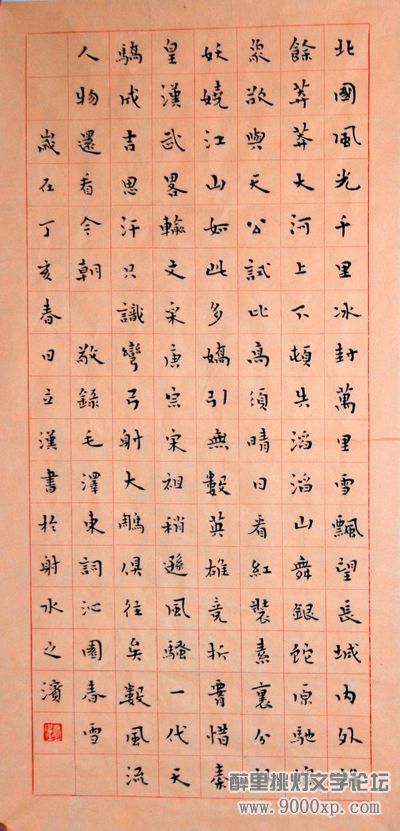 北國風光千里冰封萬里雪飄望長城内外
餘莽莽大河上下頓失滔滔山舞銀蛇原馳
象欲與天公試比高須晴日看紅裝素裹分
妖嬈江山如此多嬌引無數英雄竞折腰惜秦
皇漢武畧輸文采唐宗宋祖稍遜風騷一代天
驕成吉思汗只識彎弓射大鵰俱往矣數風流
人物還看今朝 敬録毛澤東詞沁園春雪
歲在丁亥春日立漢書於射水之濱
醉里挑灯文学论坛
www.9000xp.com